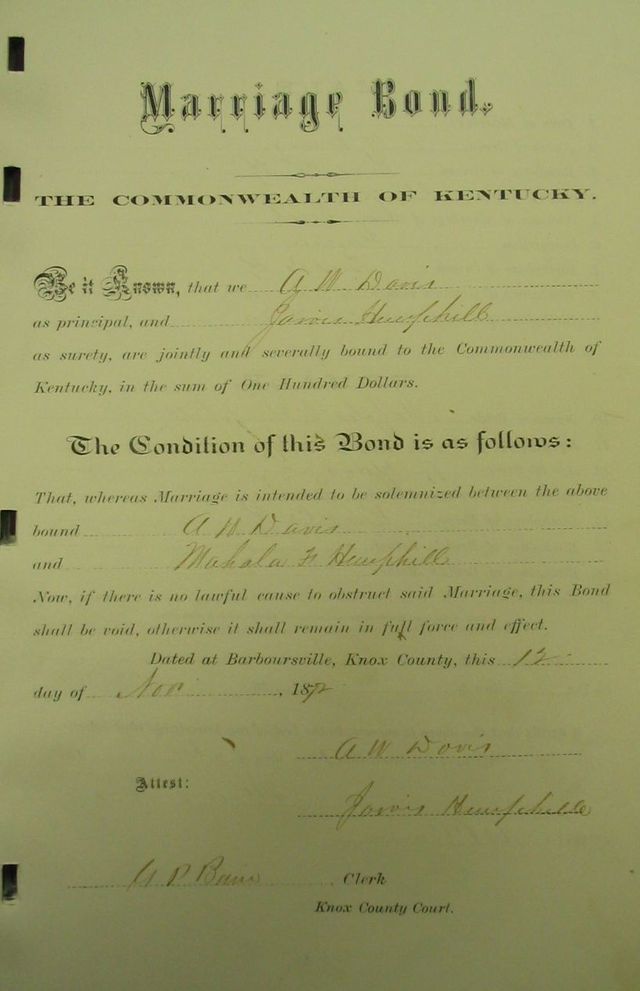 Marriage Bond.
THE COMMONWEALTH OF KENTUCKY.
Be it Known, that we A W Davis
as principal, and Jarvis Hemphill
as surety, are jointly and severally bound to the Commonwealth of
Kentucky, in the sum of One Hundred Dollars.
The Condition of this Bond is as follows:
That, whereas Marriage is intended to be solemnized between the above
bound A W Davis
and Mahala F Hemphill
Now, if there is no lawful cause to obstruct said Marriage, this Bond
shall be void, otherwise it shall remain in full force and effect.
Dated at Barboursville, Knox County, this 12
day of Nov , 1872
A W Davis
Attest:
Jarvis Hemphill
Clerk
Knox County Court.